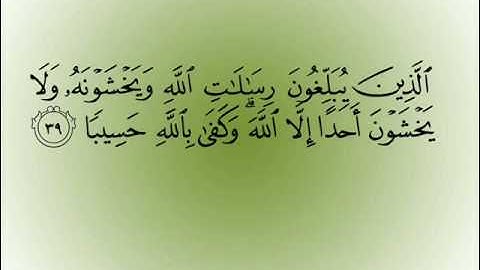 ٱلَّذِينَ يُبَلِّغُونَ رِسَٰلَٰتِ ٱللَّهِ وَيَخْشَوْنَهُۥ وَلَا
يَخْشَوْنَ أَحَدًا إِلَّا ٱللَّهَ ۗ وَكَفَىٰ بِٱللَّهِ حَسِيبًا ٣٩